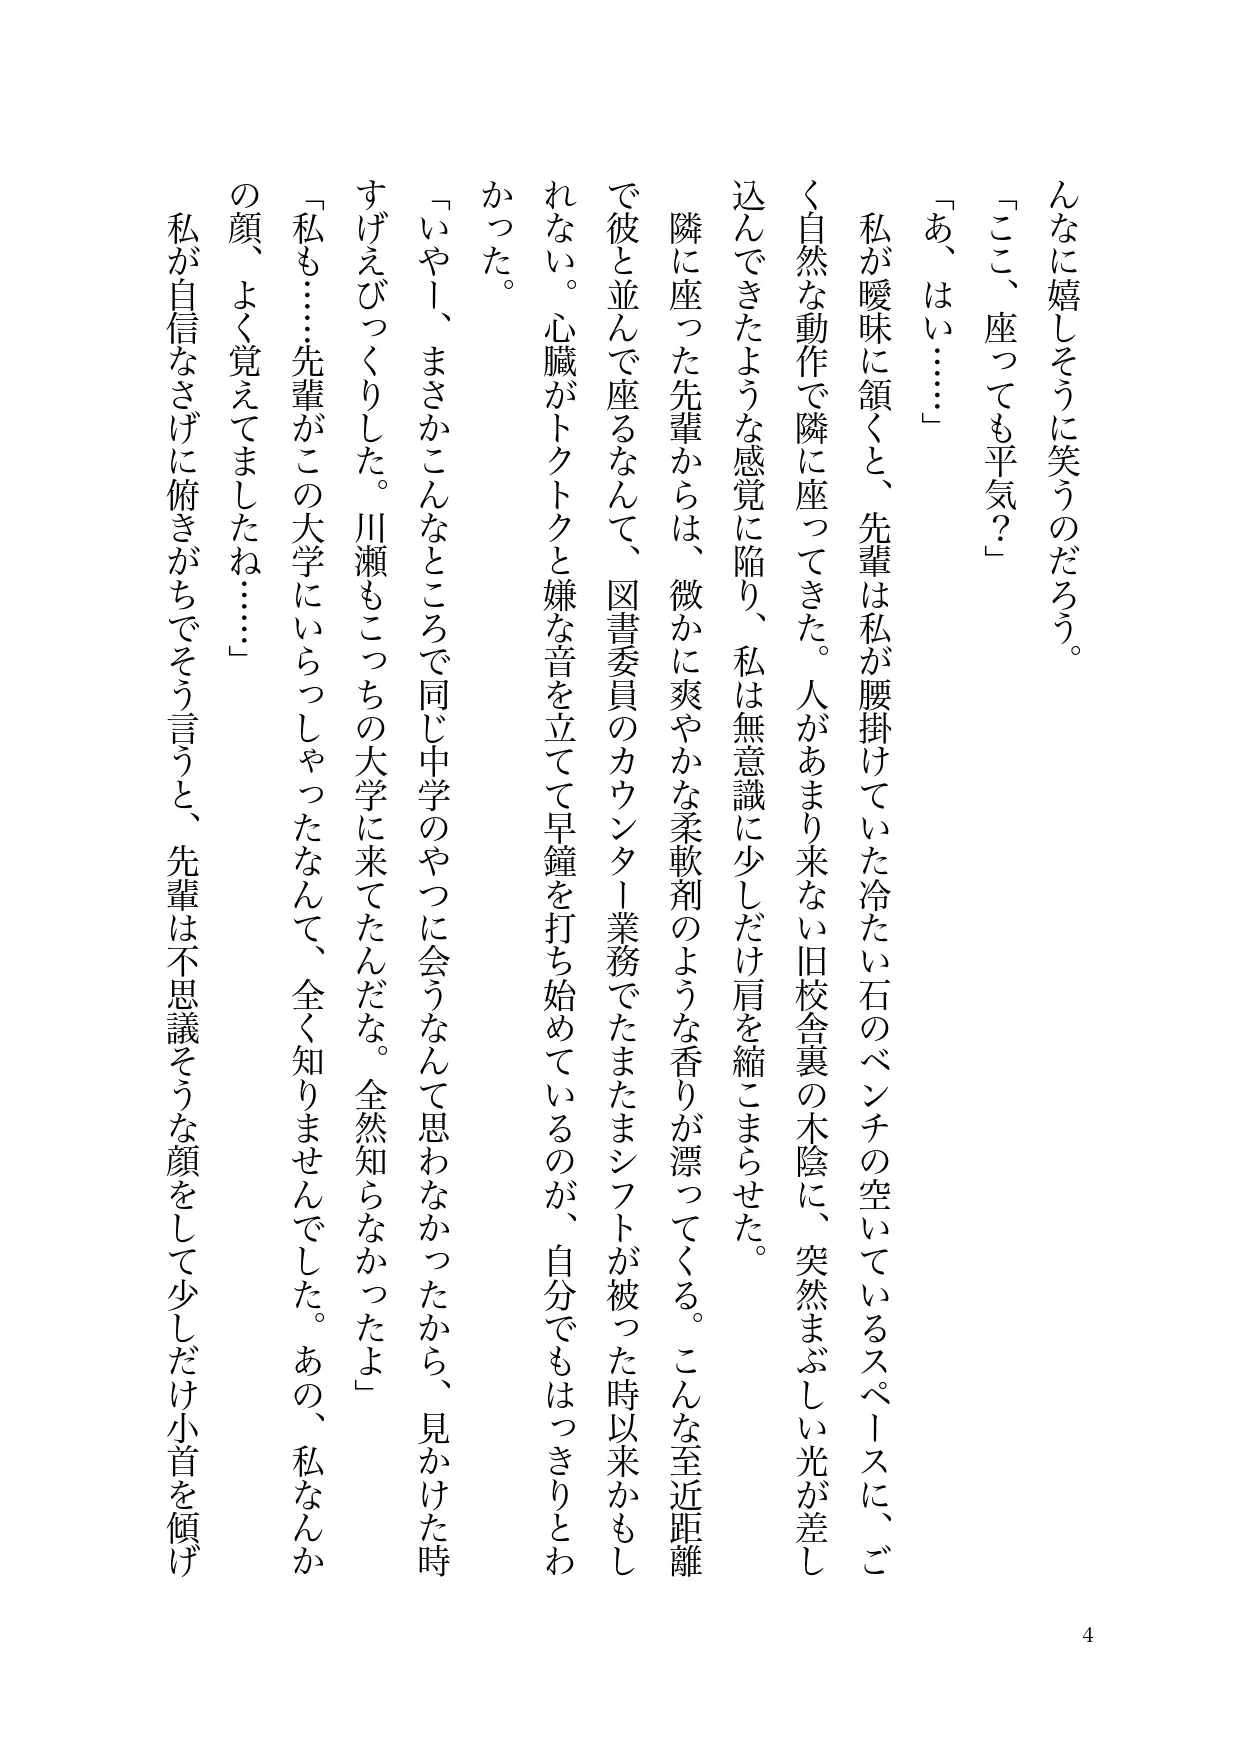 んなに嬉しそうに笑うのだろう。
「ここ、座っても平気？」
「あ、はい……」
私が曖昧に頷くと、先輩は私が腰掛けていた冷たい石のベンチの空いているスペースに、ご
く自然な動作で隣に座ってきた。人があまり来ない旧校舎裏の木陰に、突然まぶしい光が差し
込んできたような感覚に陥り、私は無意識に少しだけ肩を縮こまらせた。
隣に座った先輩からは、微かに爽やかな柔軟剤のような香りが漂ってくる。こんな至近距離
で彼と並んで座るなんて、図書委員のカウンター業務でたまたまシフトが被った時以来かもし
れない。心臓がトクトクと嫌な音を立てて早鐘を打ち始めているのが、自分でもはっきりとわ
かった。
「いやー、まさかこんなところで同じ中学のやつに会うなんて思わなかったから、見かけた時
すげえびっくりした。川瀬もこっちの大学に来てたんだな。全然知らなかったよ」
「私も……先輩がこの大学にいらっしゃったなんて、全く知りませんでした。あの、私なんか
の顔、よく覚えてましたね……」
私が自信なさげに俯きがちでそう言うと、先輩は不思議そうな顔をして少しだけ小首を傾げ
4